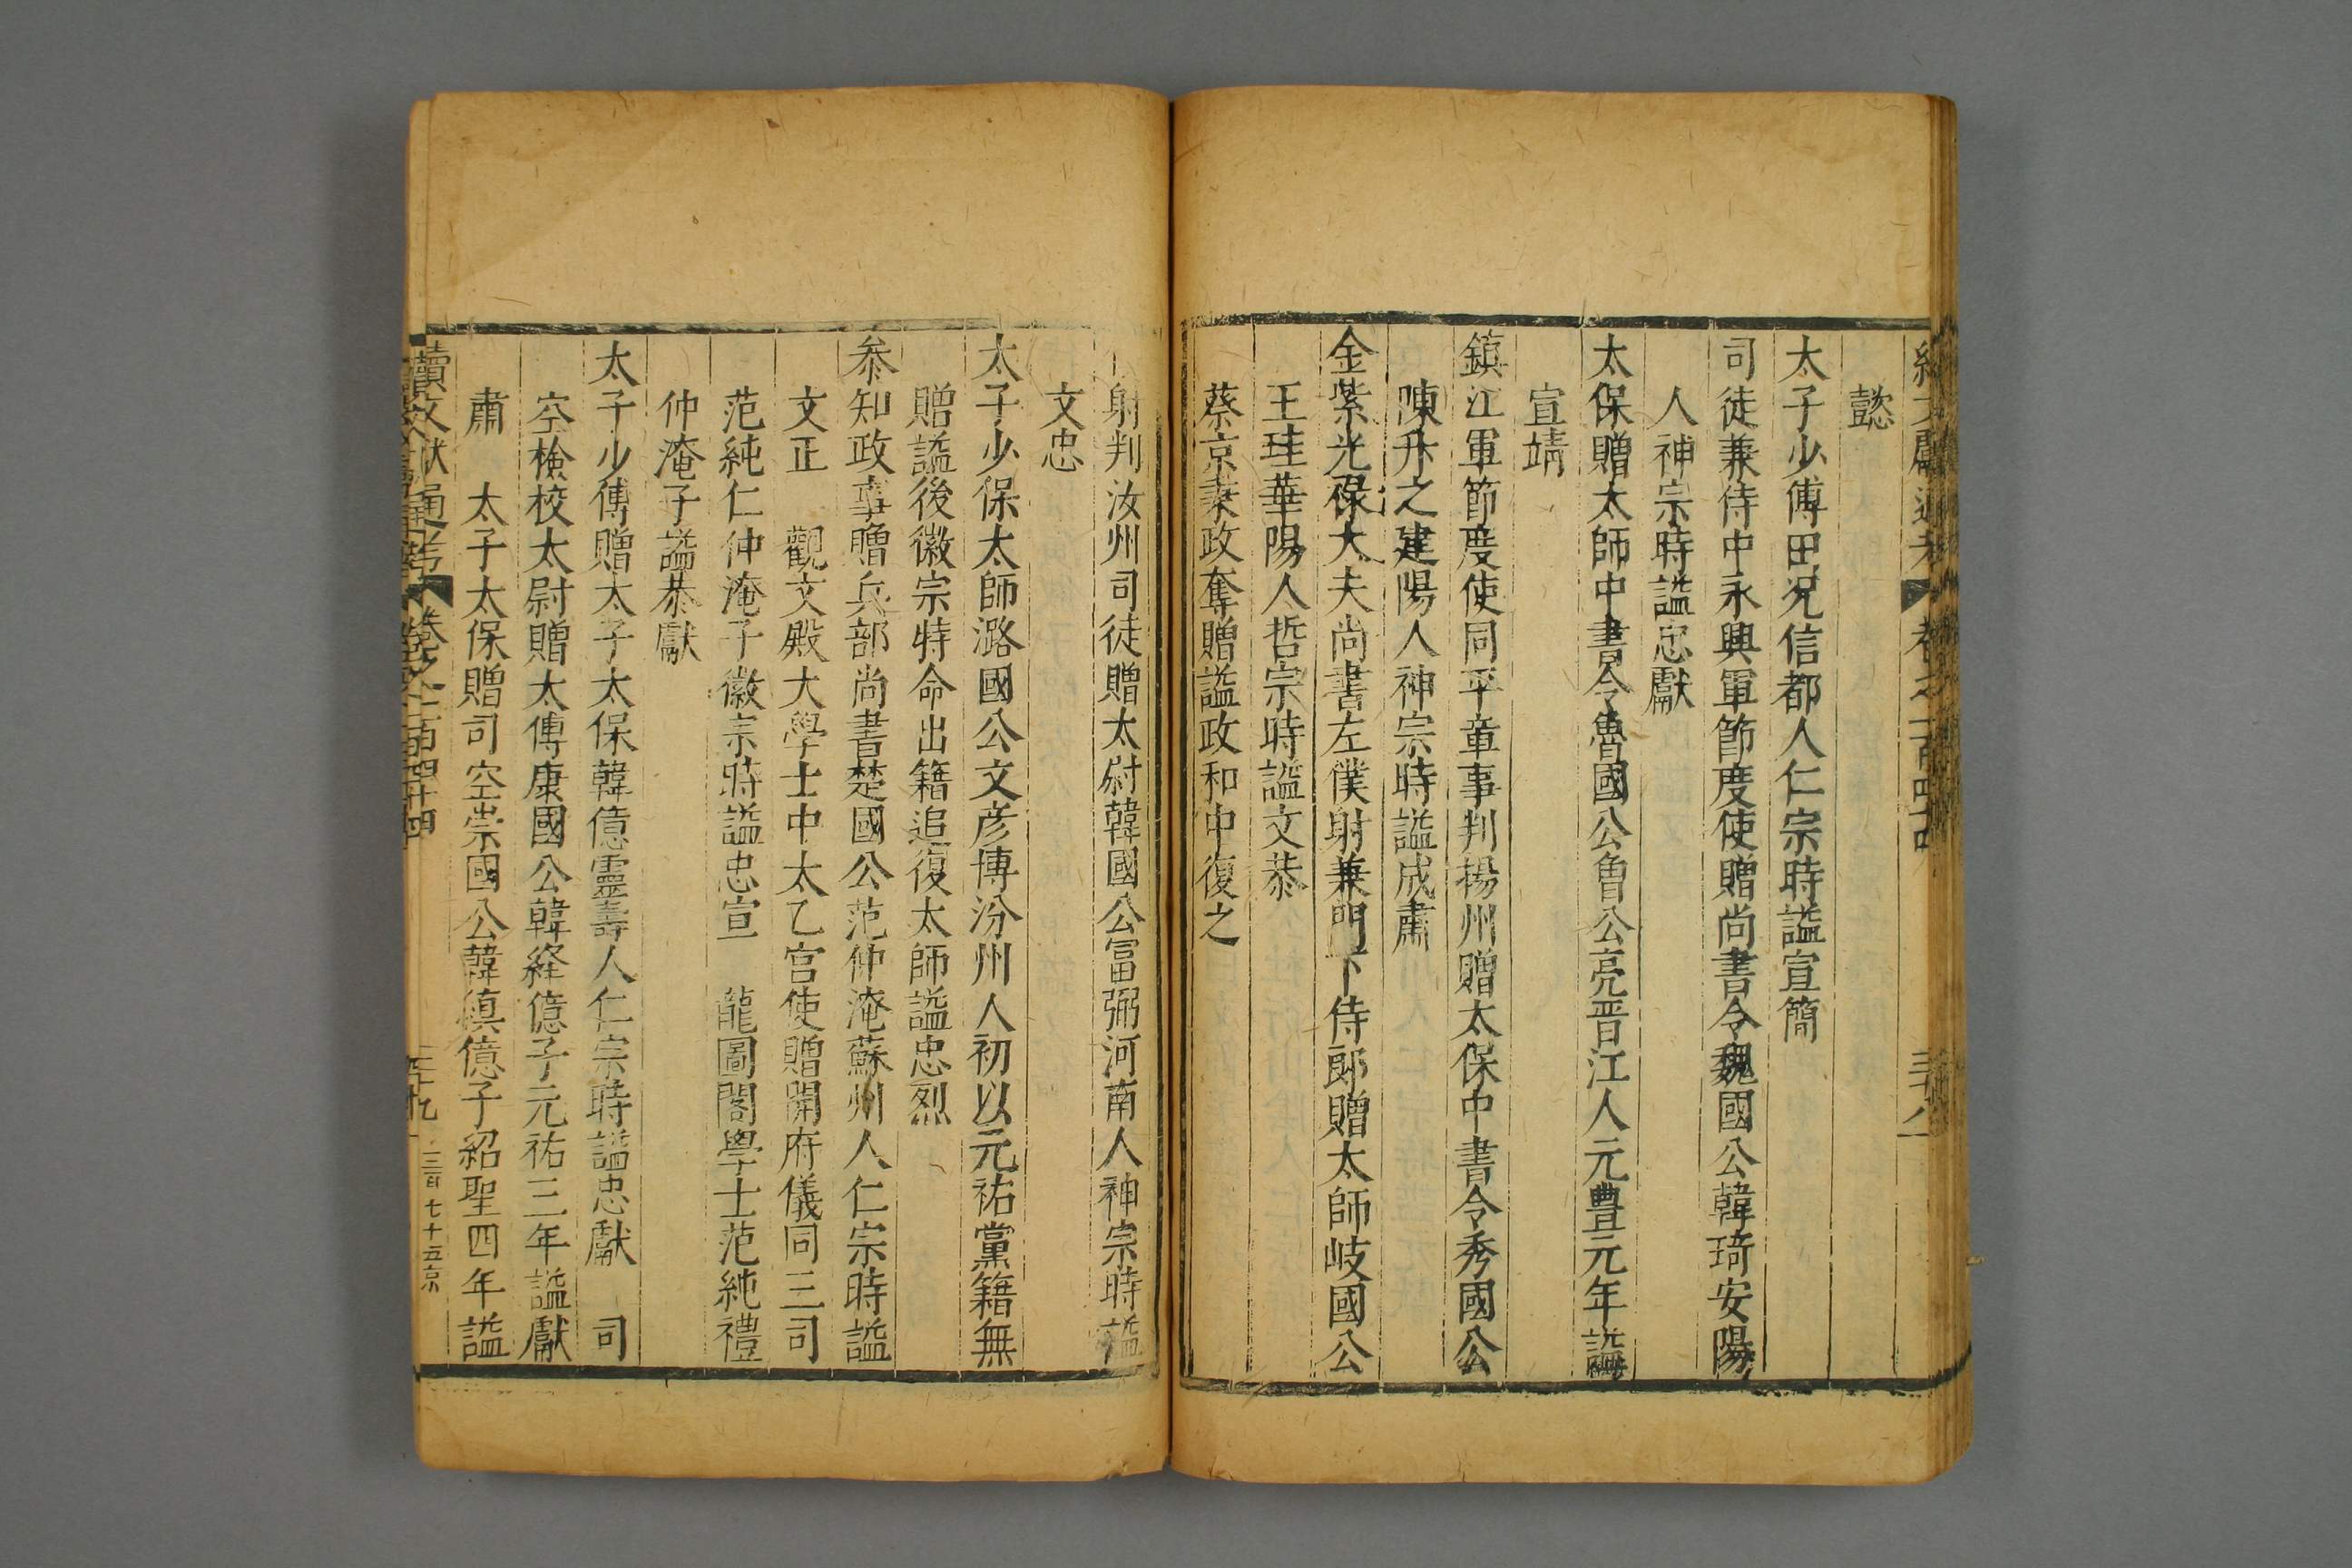 續文獻通考 卷之一百四十四 三十八
懿
太子少傅田況信都人仁宗時謚宣簡
司徒兼侍中永興軍節度使贈尚書令魏國公韓琦安陽
人神宗時謚忠獻
太保贈太師中書令魯國公曾公亮晉江人元豊元年謚
宣靖
鎮江軍節度使同平章事判揚州贈太保中書令秀國公
陳升之建陽人神宗時謚成肅
金紫光祿大夫尚書左僕射兼門下侍郎贈太師岐國公
王珪華陽人哲宗時謚文恭
蔡京秉政奪贈謚政和中復之
射判汝州司徒贈太尉韓國公富弼河南人神宗時謚
文忠
太子少保太師潞國公文彦博汾州人初以元祐黨籍無
贈謚後徽宗特命出籍追復太師謚忠烈
叅知政事贈兵部尚書楚國公范仲淹蘇州人仁宗時謚
文正 觀文殿大學士中太乙宮使贈開府儀同三司
范純仁仲淹子徽宗時謚忠宣 龍圖閣學士范純禮
仲淹子謚恭獻
太子少傅贈太子太保韓億靈壽人仁宗時謚忠獻 司
空檢校太尉贈太傅康國公韓絳億子元祐三年謚獻
肅 太子太保贈司空崇國公韓縝億子紹聖四年謚
續文獻通考 卷之一百四十四 三十九 三百七十五